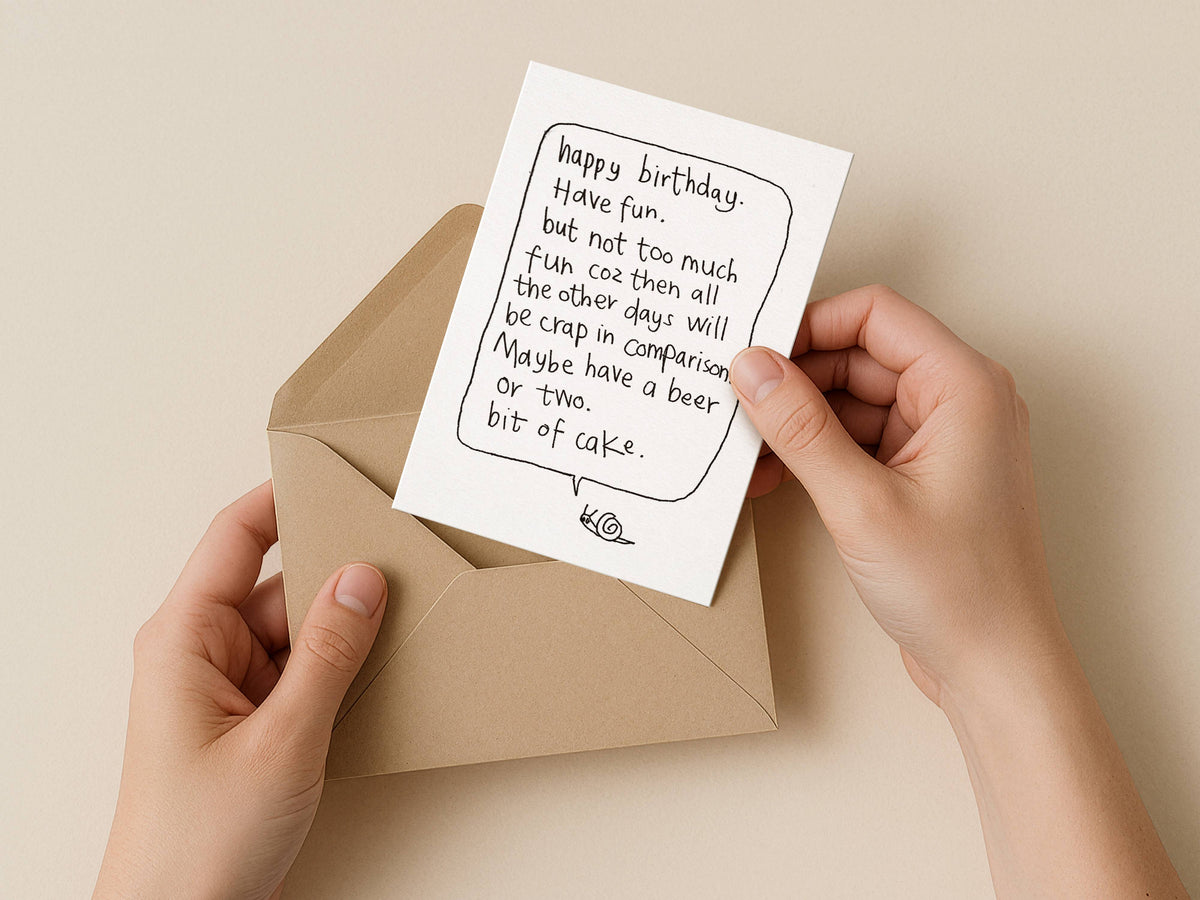 happy birthday.
Have fun.
but not too much
fun coz then all
the other days will
be crap in comparison.
Maybe have a beer
or two.
bit of cake.